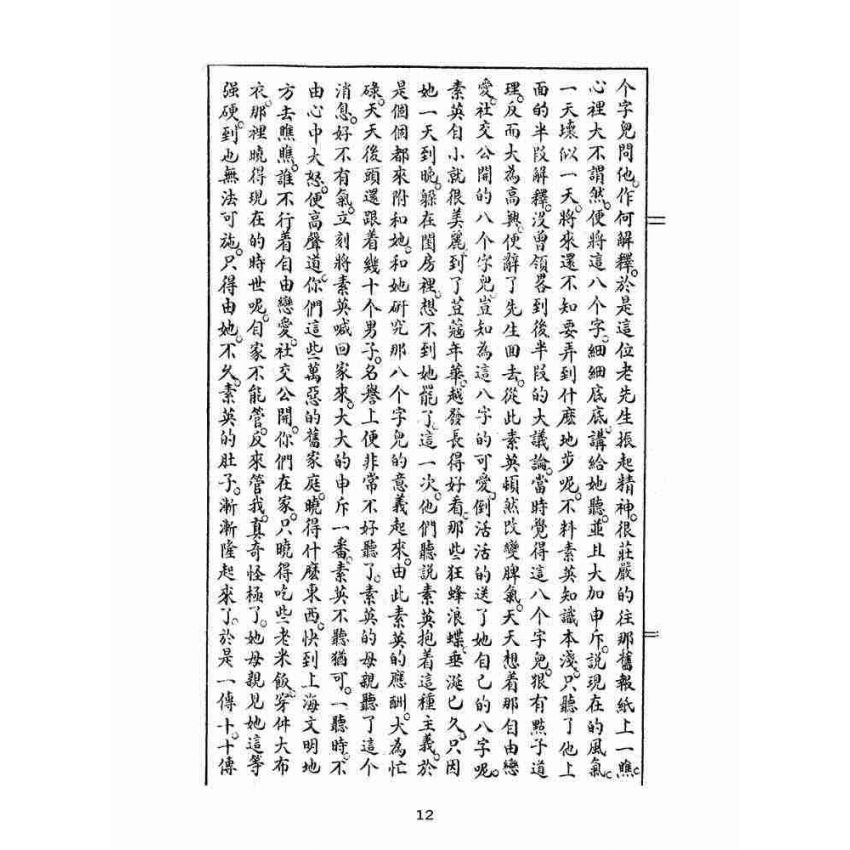 个字兒問他。作何解釋。於是這位老先生振起精神。很莊嚴的往那舊報紙上一瞧。
心裡大不謂然。便將這八个字。細細底底。講給她聽。並且大加申斥。說現在的風氣。
一天壞似一天。將來還不知要弄到什麽地步呢。不料素英知識本淺。只聽了他上
面的半段解釋。沒曾領畧到後半段的大議論。當時覺得這八个字兒。狠有點子道
理。反而大為高興。便辭了先生囬去。從此素英頓然改變脾氣。天天想着那自由戀
愛。社交公開的八个字兒。豈知為這八字的可愛。倒活活的送了她自己的八字呢。
素英自小就很美麗。到了荳蔻年華。越發長得好看。那些狂蜂浪蝶。垂涎已久。只因
她一天到晚。躲在閨房裡。想不到她罷了。這一次。他們聽說素英抱着這種主義。於
是個個都來附和她。和她研究那八个字兒的意義起來。由此素英的應酬。大為忙
碌。天天後頭還跟着幾十个男子。名譽上便非常不好聽了。素英的母親聽了這个
消息。好不有氣。立刻將素英喊回家來。大大的申斥一番。素英不聽猶可。一聽時。不
由心中大怒。便高聲道。你們這些萬惡的舊家庭。曉得什麽東西。快到上海文明地
方去瞧瞧。誰不行着自由戀愛。社交公開。你們在家。只曉得吃些老米飯。穿件大布
衣。那裡曉得現在的時世呢。自家不能管。反來管我。真奇怪極了。她母親見她這等
强硬。到也無法可施。只得由她。不久。素英的肚子。漸漸隆起來了。於是一傳十。十傳
12